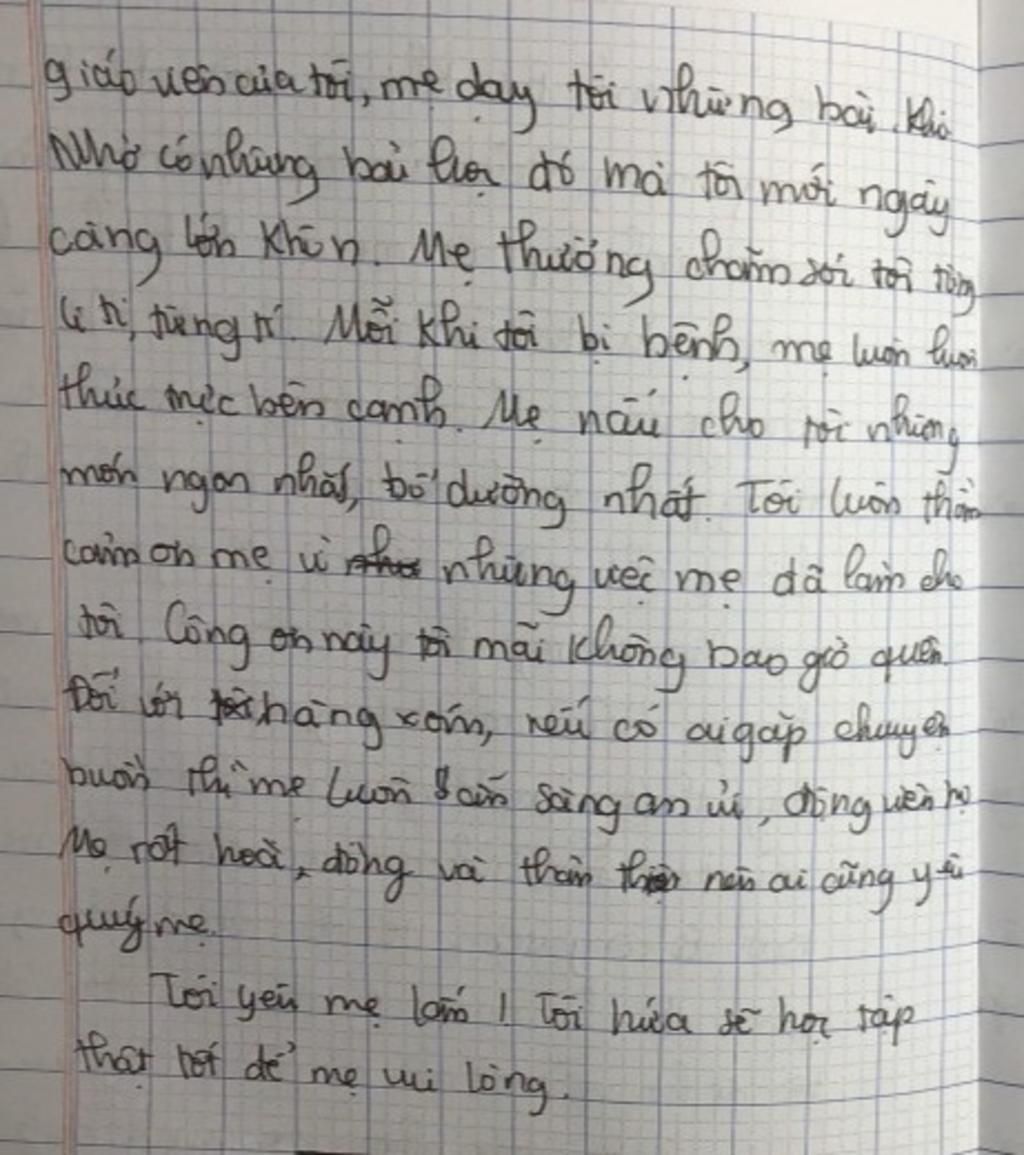 giáo viên của tôi, mẹ dạy tôi những bài khó
Nhờ có những bài học đó mà tôi mới ngày
càng lớn khôn. Mẹ thường chăm sói tôi từng
li tí, từng tí. Mỗi khi tôi bị bệnh, mẹ luôn luôn
thúc mực bên cạnh. Mẹ nấu cho tôi những
món ngon nhất, bổ dưỡng nhất. Tôi luôn thầm
cảm ơn mẹ vì những việc mẹ đã làm cho
tôi Công ơn này tôi mãi không bao giờ quên
Đối với hàng xóm, nếu có ai gặp chuyện
buồn thì mẹ luôn sẵn sàng an ủi, động viên họ
Mẹ rất hoà, đồng và thân thiện nên ai cũng yêu
quý mẹ.
Tôi yêu mẹ lắm! Tôi hứa sẽ học tập
thật tốt để mẹ vui lòng.